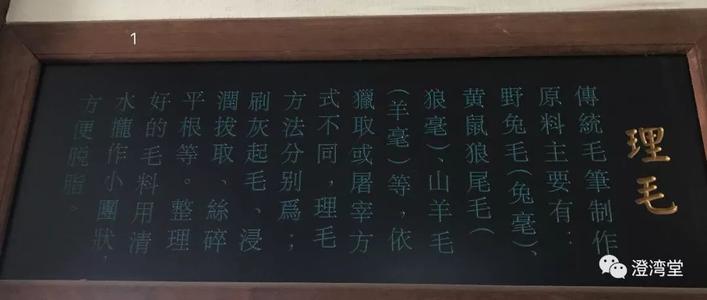 1
理毛
傳統毛筆制作
原料主要有：
野兔毛（兔毫）、
黄鼠狼尾毛（
狼毫）、山羊毛
（羊毫）等，依
獵取或屠宰方
式不同，理毛
方法分别爲；
刷灰起毛、浸
潤拔取、絲碎
平根等。整理
好的毛料用清
水攏作小團狀，
方便脱脂。
澄湾堂